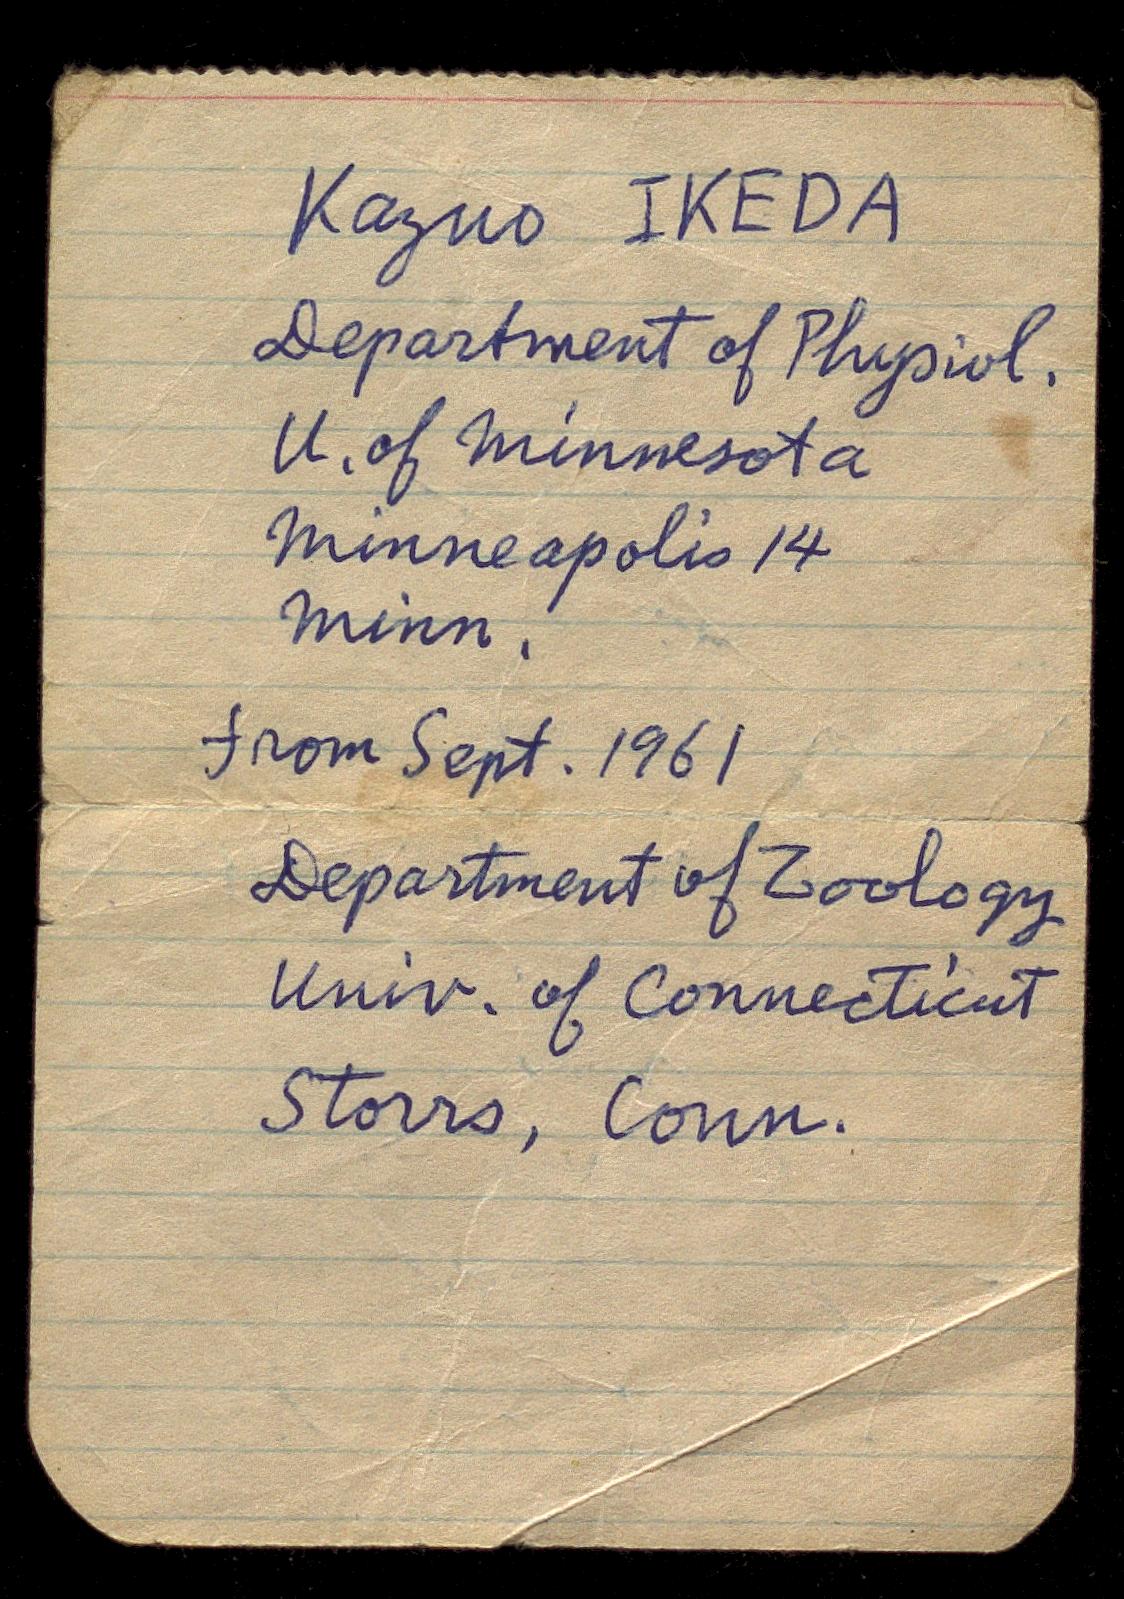 Kazuo IKEDA
Department of Physiol.
U. of Minnesota
Minneapolis 14
Minn.
from Sept. 1961
Department of Zoology
Univ. of Connecticut
Storrs, Conn.